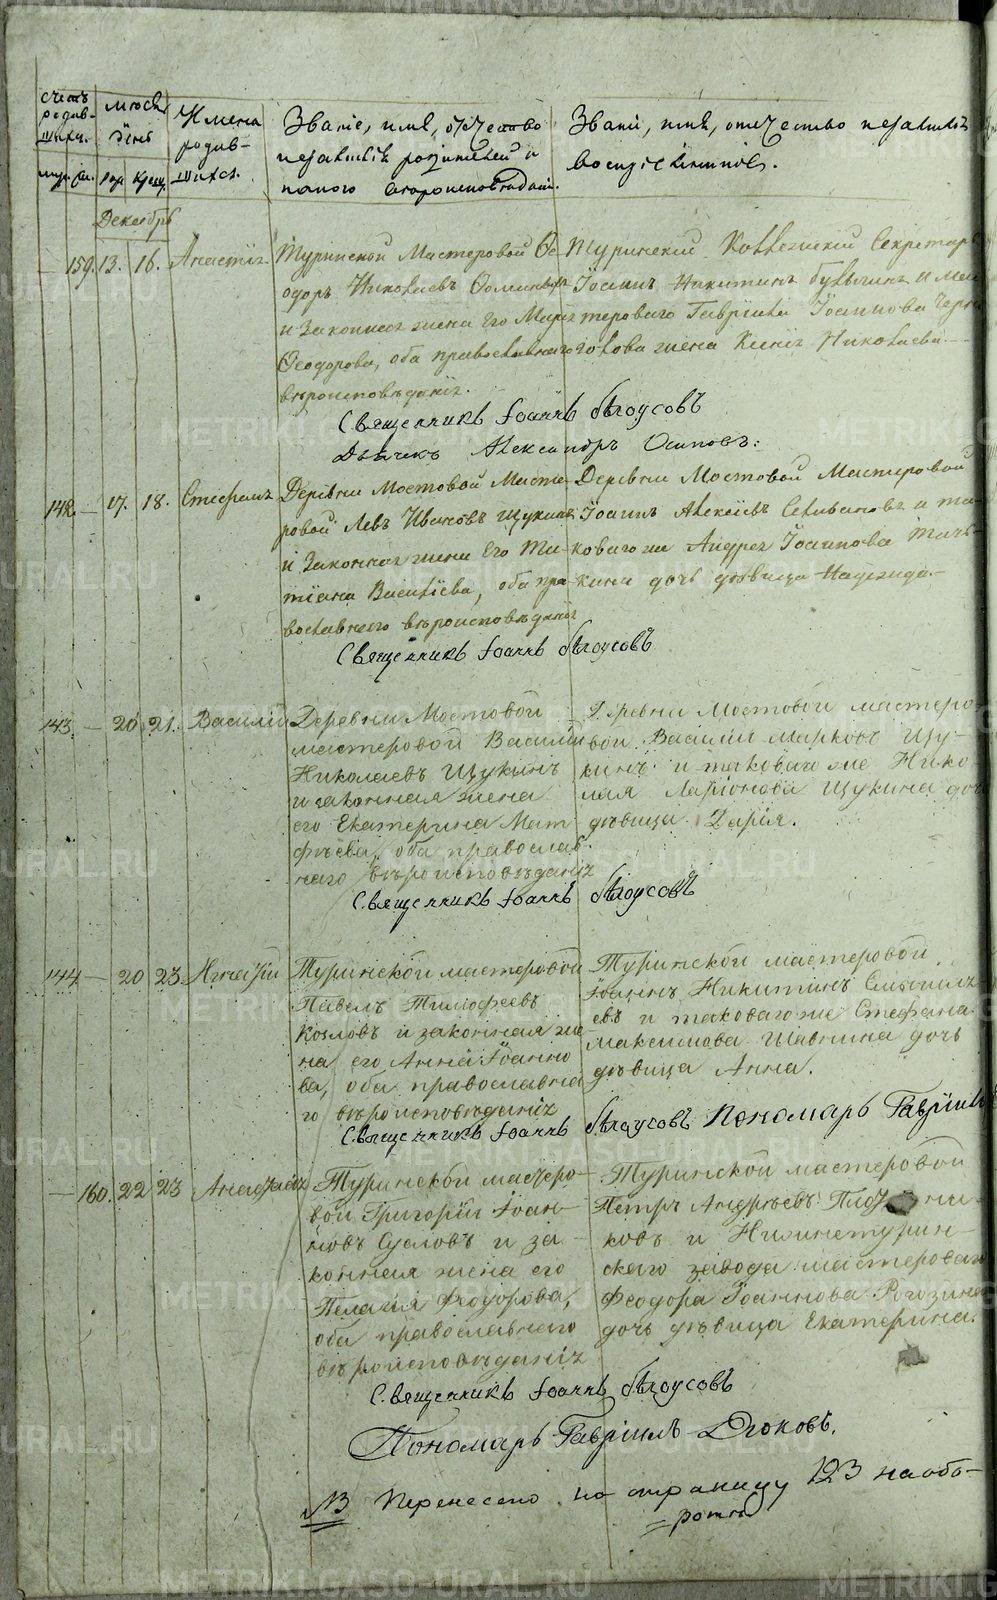 Счетъ родив-шихся.
муж. жен.
Мѣсяцъ день
рож. Крещ.
Имена родив-шихся.
Званіе, имя, отчество
и фамилія родителей и
какого вѣроисповѣданія.
Званіе, имя, отчество и фамилія
воспріемниковъ.
Декабрь
159. 13. 16. Анастасія
Туринской Мастеровой Ѳе-
одоръ Николаевъ
и Законная жена Его Марія
Ѳеодорова, оба православнаго
вѣроисповѣданія.
Туринскій Секретарь
Іоаннъ Никитинъ и мас-
терового Гавріила Іоаннова
жена Ксенія Николаева
Священникъ Іоаннъ Бѣлоусовъ
Дьячекъ Александръ Осиповъ:
142 — 17. 18. Стефанъ
Деревни Мостовой Масте-
ровой Левъ Ивановъ Щукинъ
и Законная жена Его Та-
тіана Васильева, оба пра-
вославнаго вѣроисповѣданія
Деревни Мостовой Мастеровой
Іоаннъ Алексіевъ Селивановъ и та-
коваго же Андрея Іоаннова
дочь дѣвица Надежда.
Священникъ Іоаннъ Бѣлоусовъ
143 — 20 21. Василій
Деревни Мостовой
мастеровой Василій
Николаевъ Щукинъ
и законная жена
его Екатерина Мат
фѣева, оба православ.
наго вѣроисповѣданія
Деревни Мостовой мастеро-
вой Василій Марковъ Щу-
кинъ и таковаго же Нико
лая Ларіонова Щукина дочь
дѣвица Дарія.
Священникъ Іоаннъ Бѣлоусовъ
144 — 20 23
Туринской мастеровой
Павелъ Тимофеевъ
Козловъ и законная же
на его Анна Іоанно
ва, оба православна
го вѣроисповѣданія
Туринской мастеровой
Іоаннъ Никитинъ
евъ и таковаго же Стефана
Максимова дочь
дѣвица Анна.
Священникъ Іоаннъ Бѣлоусовъ Пономарь Гавріилъ
— 160. 22 23 Анастасія
Туринской мастеро-
вой Григорій Іоан-
новъ Сусловъ и за-
конная жена его
Пелагія Феодорова,
оба православнаго
вѣроисповѣданія
Туринской мастеровой
Петръ Андреевъ Плотни-
ковъ и Нижнетурин-
скаго завода мастероваго
Феодора Іоаннова Рогозина
дочь дѣвица Екатерина.
Священникъ Іоаннъ Бѣлоусовъ
Пономарь Гавріилъ Дюковъ.
NB Перенесено на страницу 123 на обо-
ротѣ
METRIKI.GASO-URAL.RU